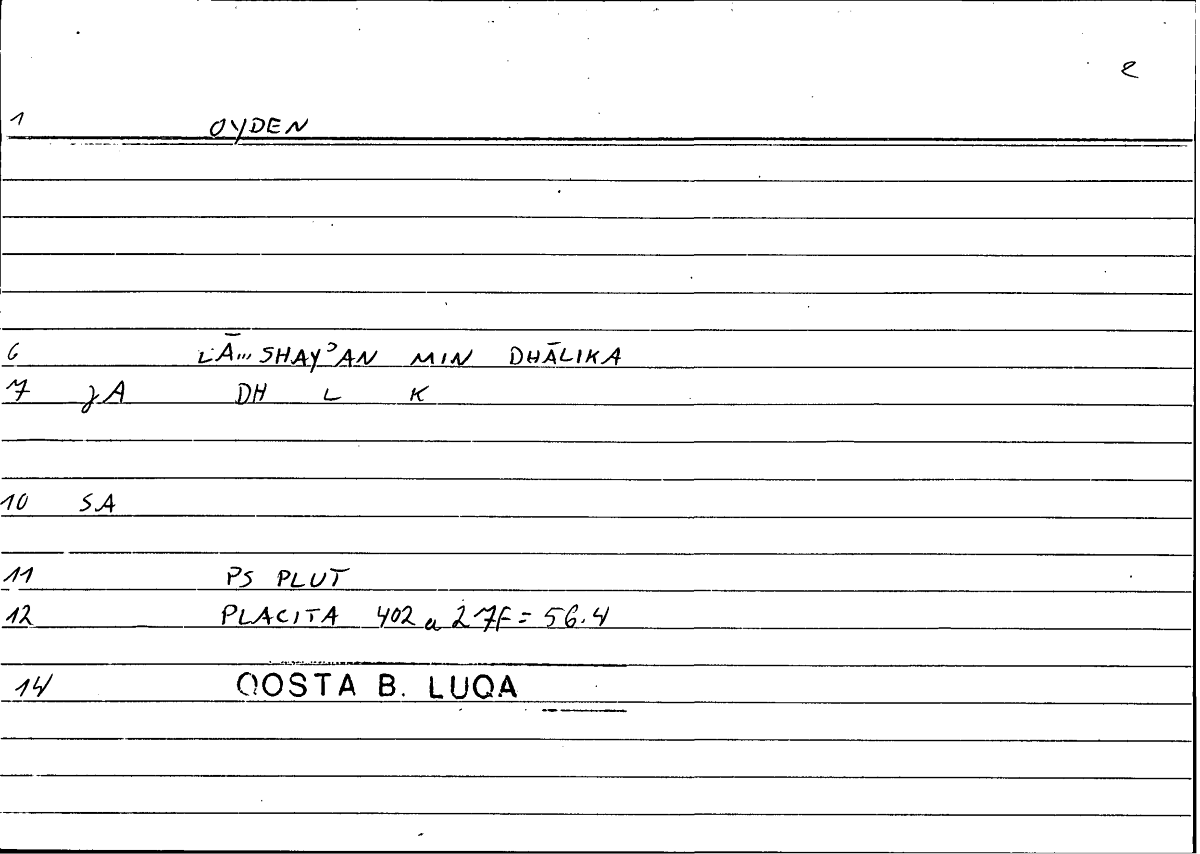 2
1 OYDEN
6 LĀ... SHAYʾAN MIN DHĀLIKA
7 JA DH L K
10 SA
11 PS PLUT
12 PLACITA 402 a 27F = 56.4
14 QOSTA B. LUQA